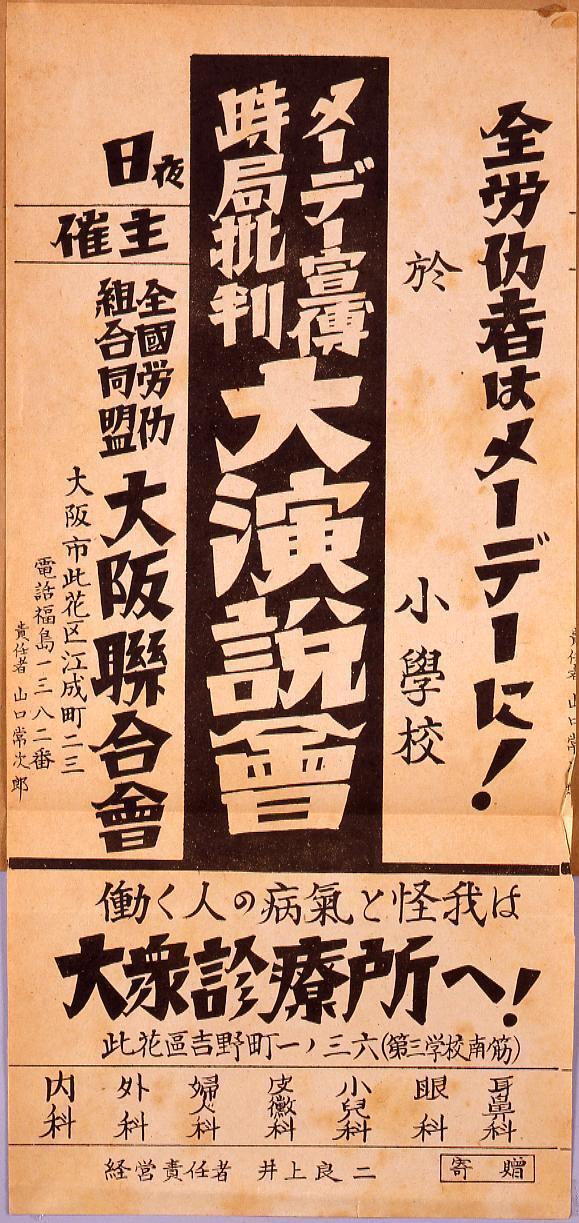 全労仂者はメーデーに!
於　小學校
メーデー宣傳
時局批判
大演説會
日夜
主催
全國労仂
組合同盟
大阪聯合會
大阪市此花区江成町二三
電話福島一三八二番
責任者 山口常次郎
働く人の病氣と怪我は
大衆診療所へ!
此花區吉野町一ノ三六(第三学校南筋)
耳鼻科
眼科
小兒科
皮黴科
婦人科
外科
内科
経営責任者　井上良二
寄贈